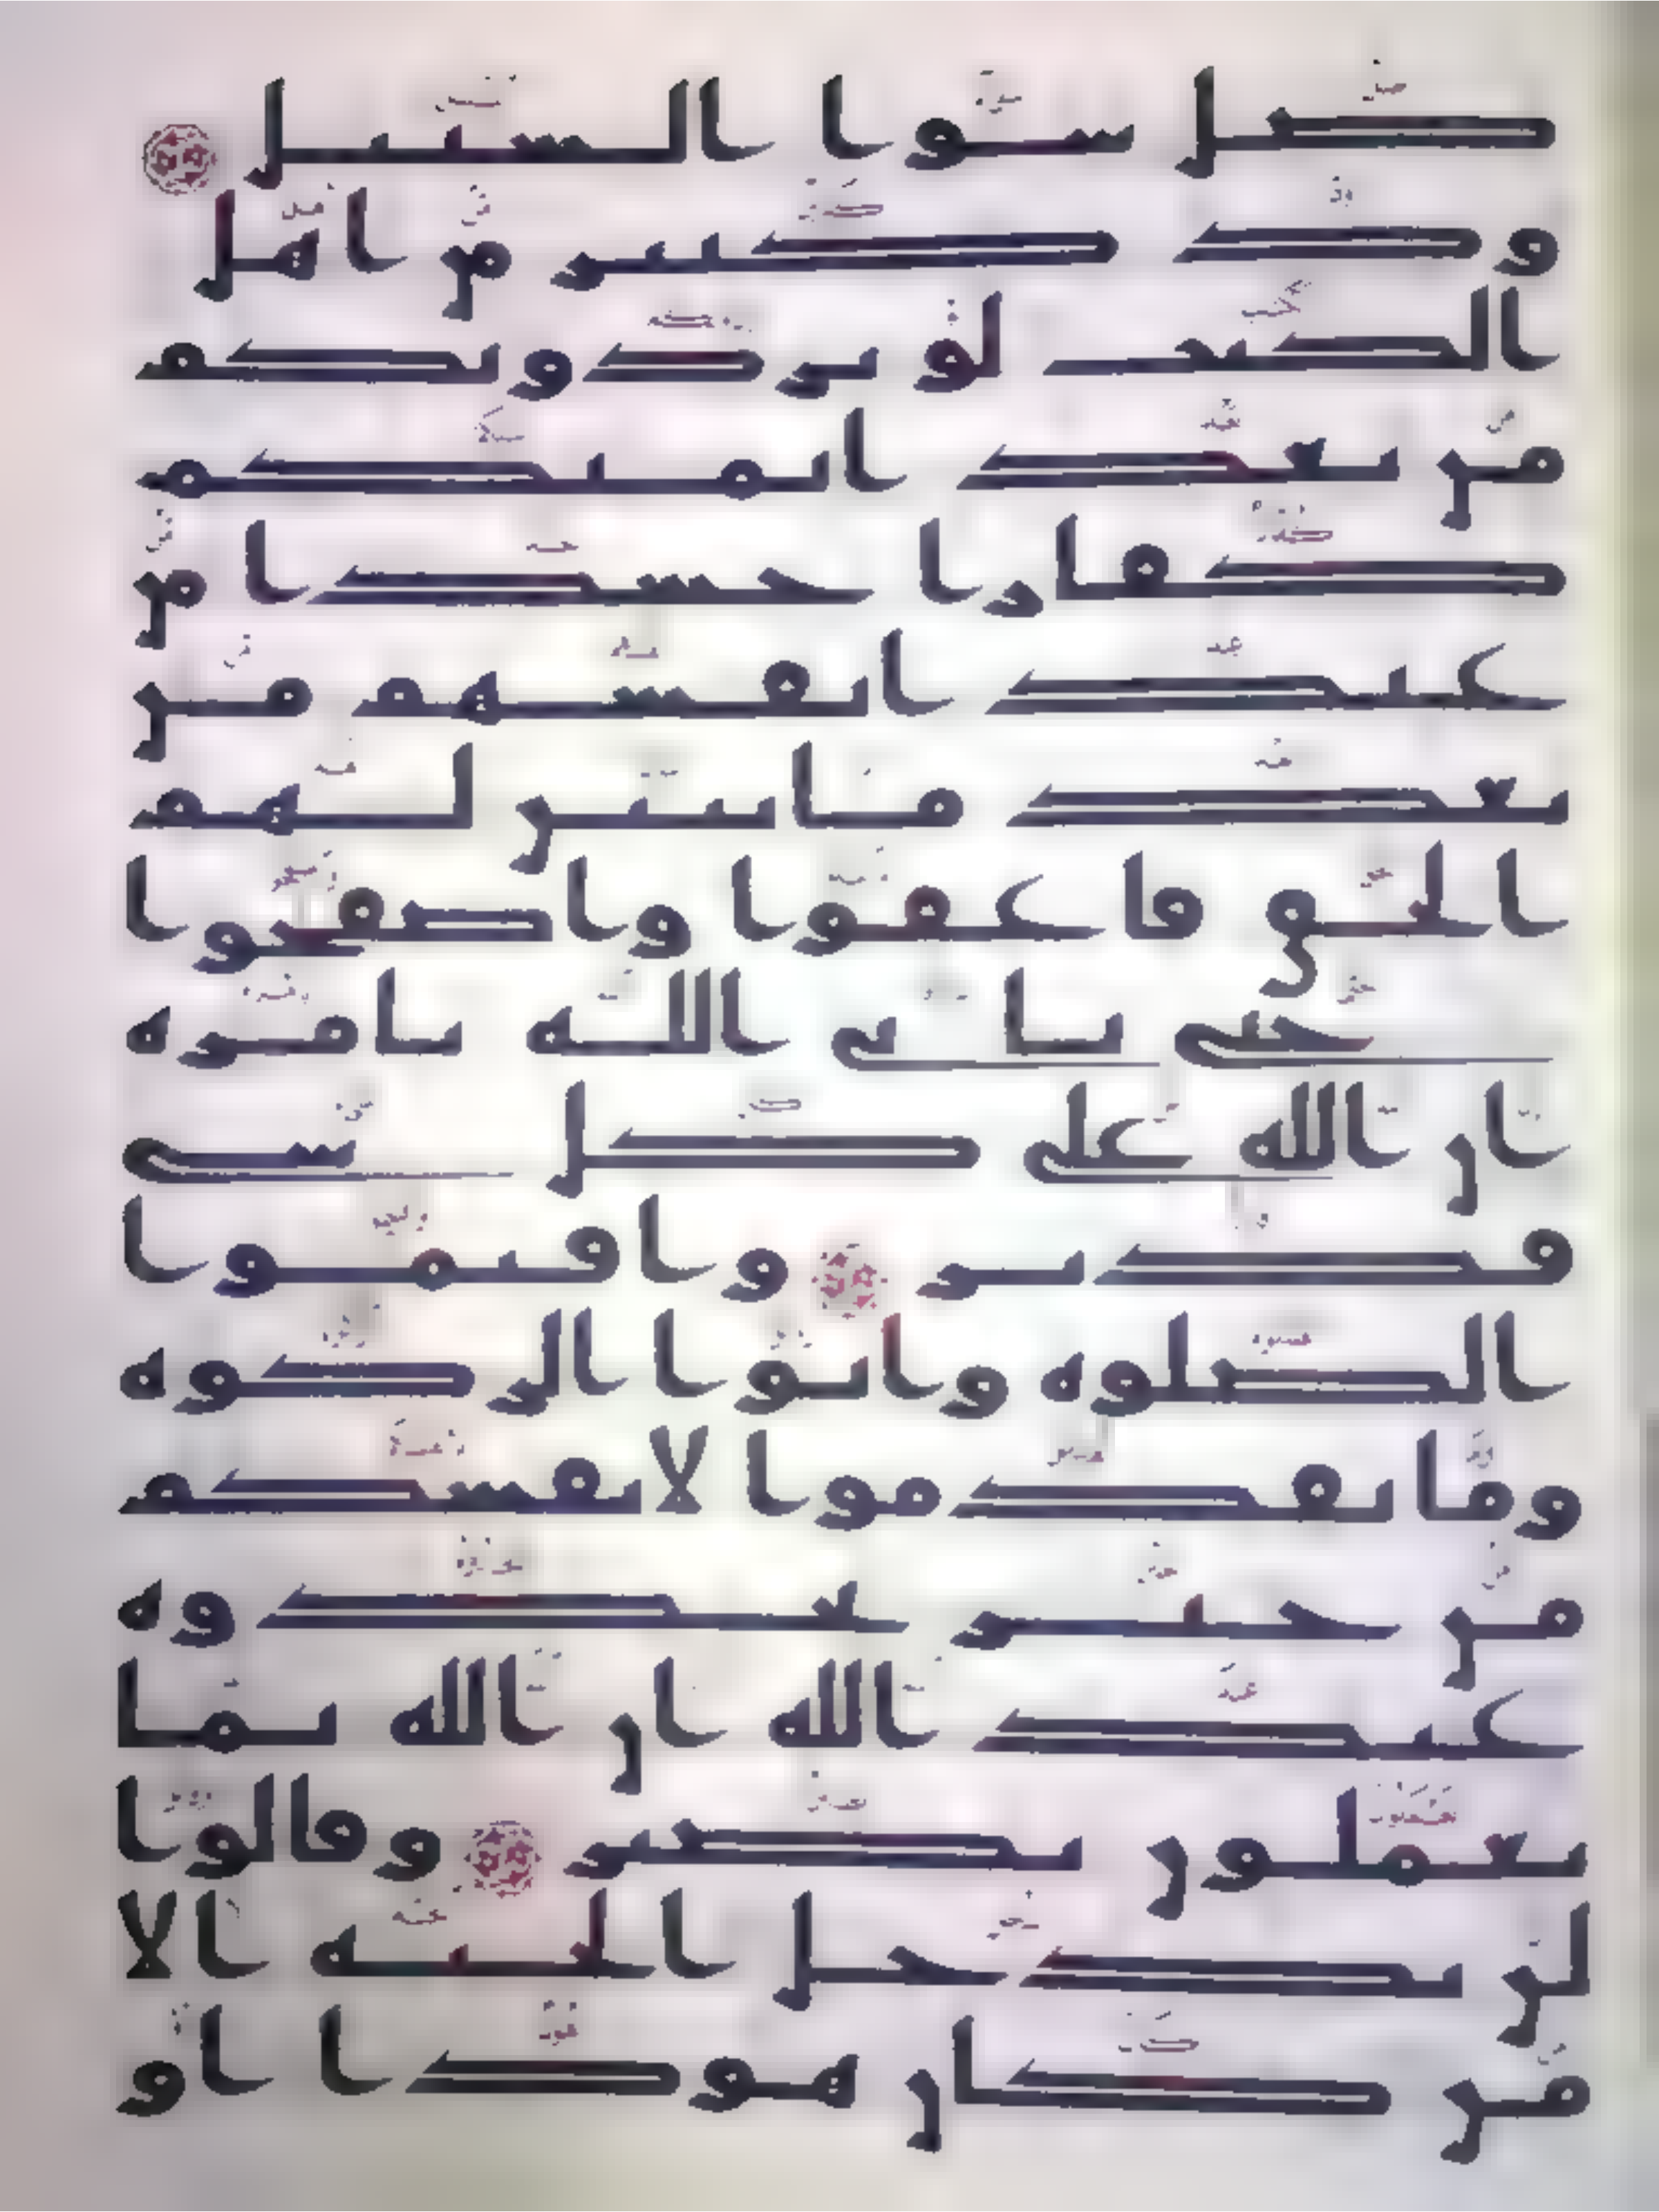 ضل سوا السبيل
ود كثير من اهل
الكتب لو يردونكم
من بعد ايمنكم
كفارا حسدا من
عند انفسهم من
بعد ما تبين لهم
الحق فاعفوا واصفحوا
حتى ياتي الله بامره
ان الله على كل شي
قدير واقيموا
الصلوه واتوا الزكوه
وما تقدموا لانفسكم
من خير تجدوه
عند الله ان الله بما
تعملون بصير وقالوا
لن يدخل الجنه الا
من كان هودا او